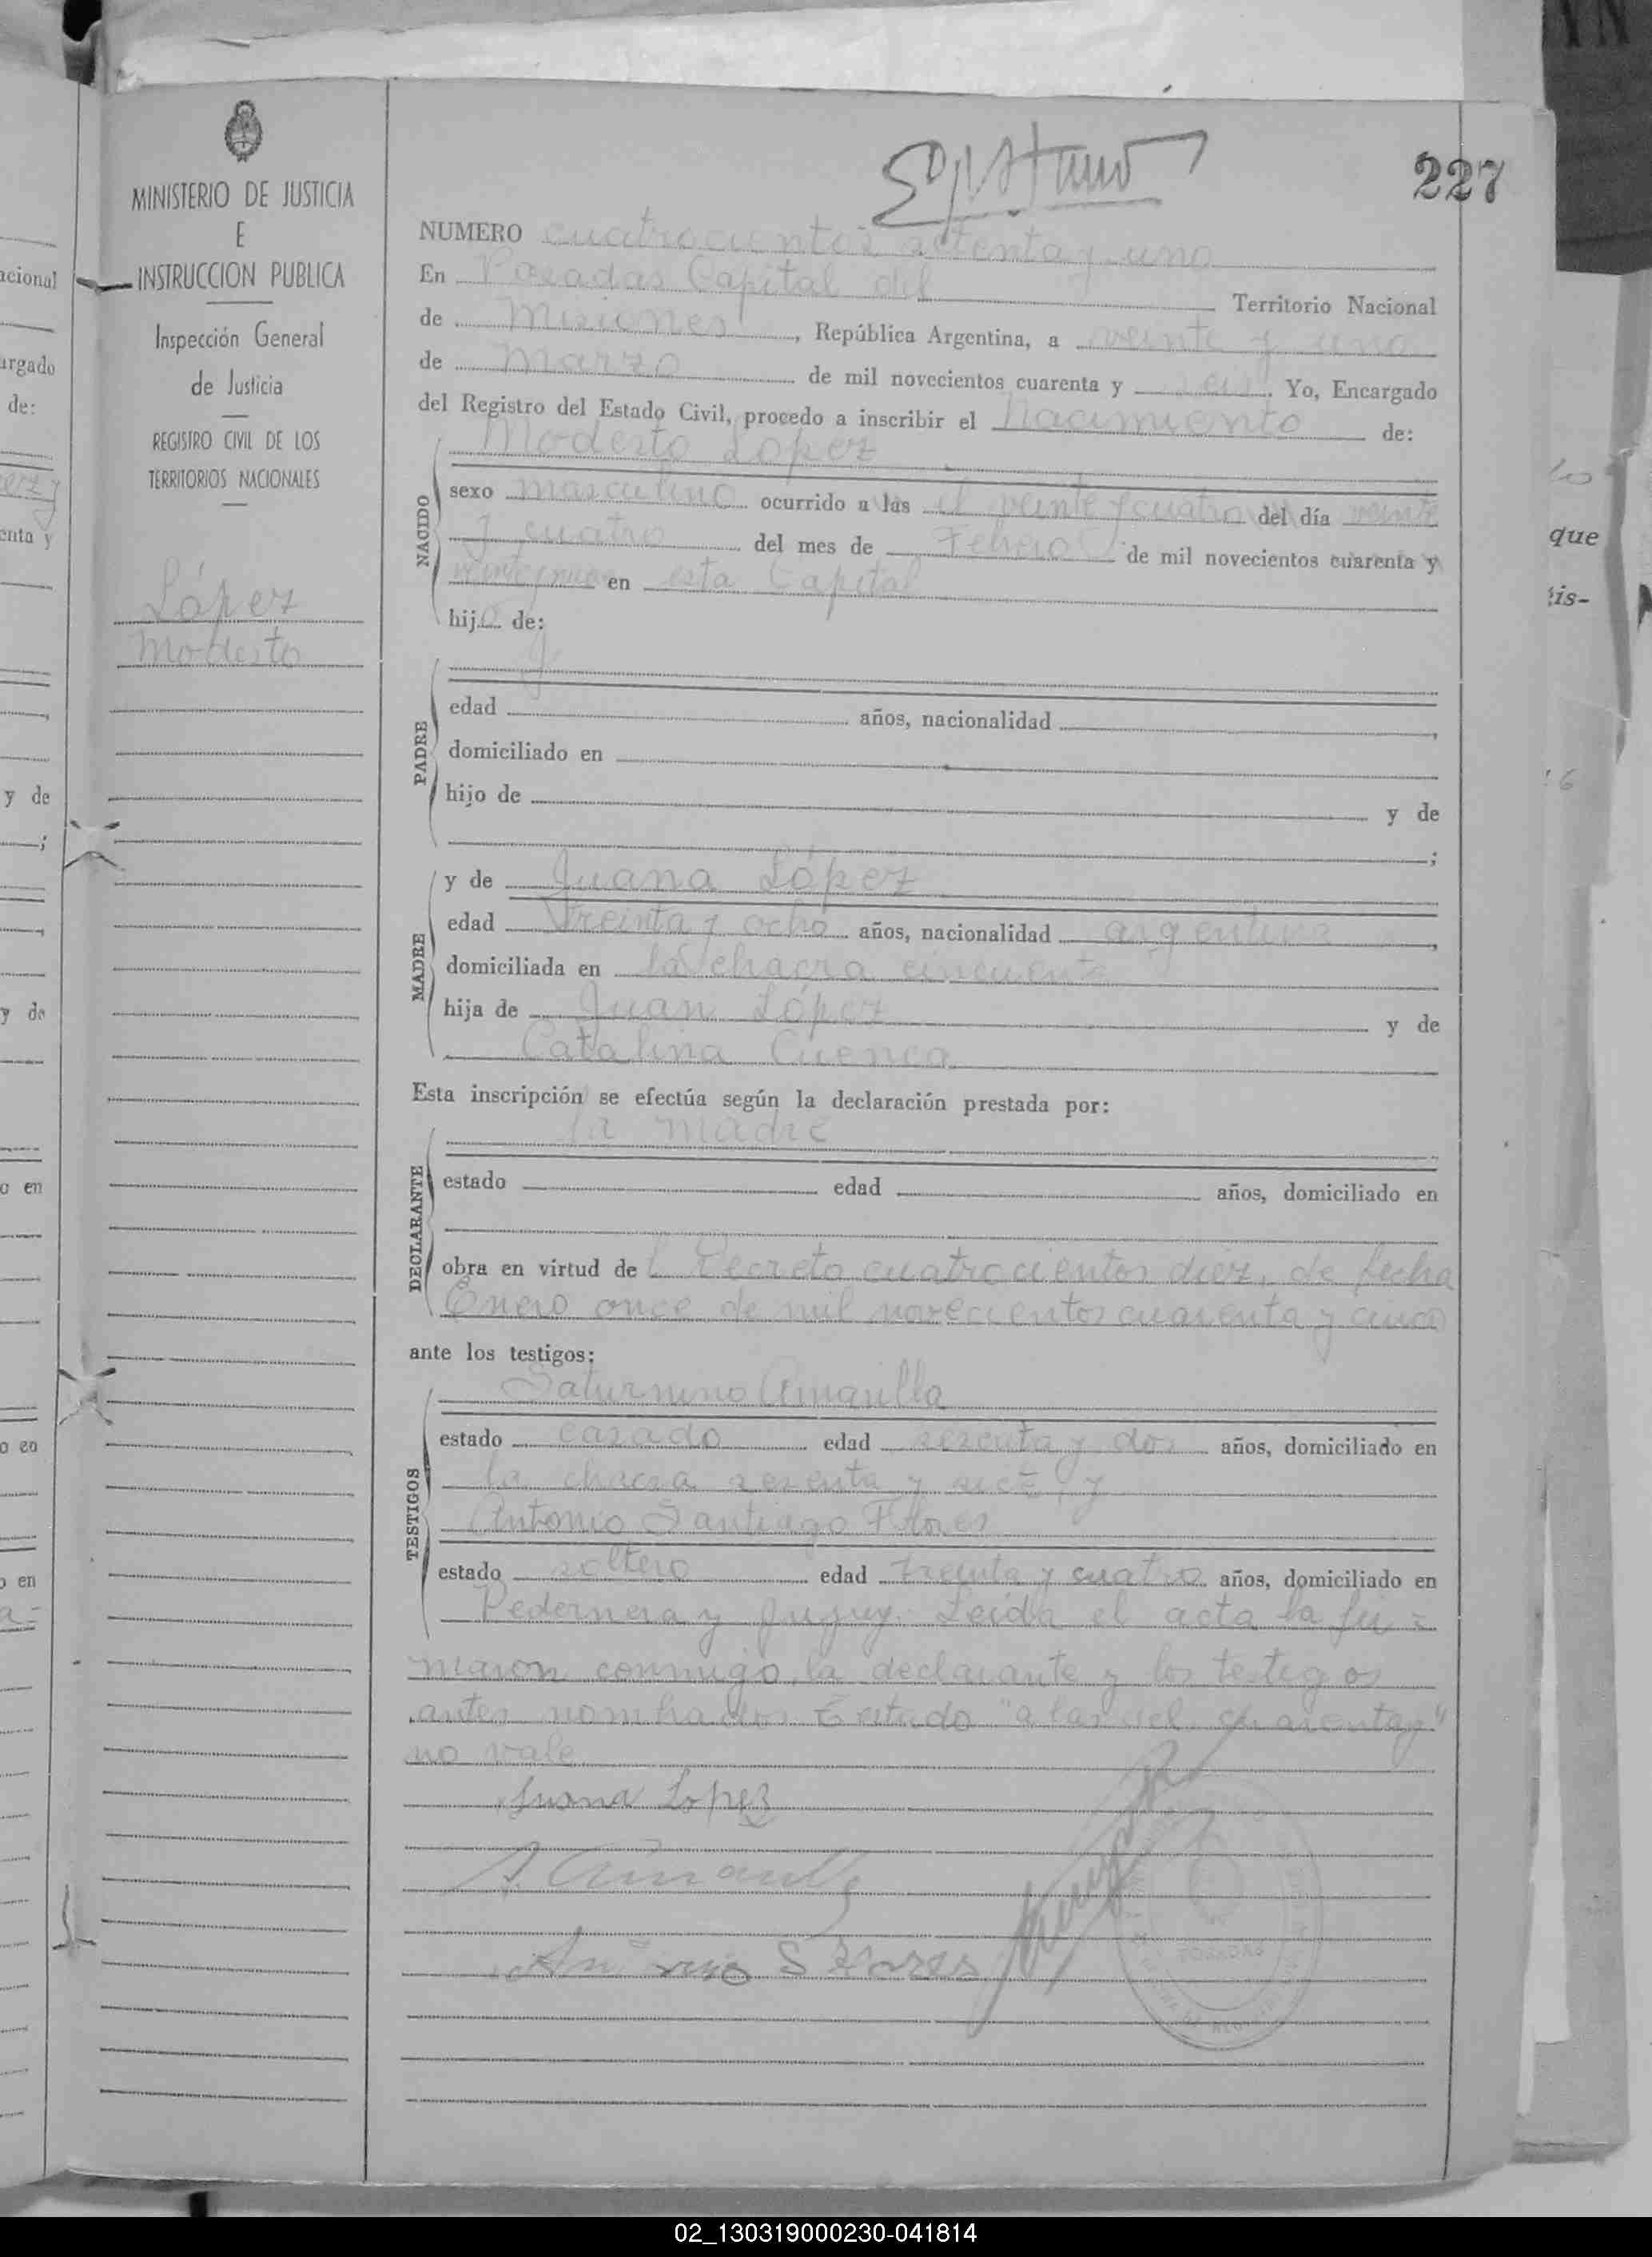 227
MINISTERIO DE JUSTICIA
E
INSTRUCCION PUBLICA
Inspección General
de Justicia
REGISTRO CIVIL DE LOS
TERRITORIOS NACIONALES
López
Modesto
NUMERO cuatrocientos setenta y uno
En Posadas Capital del Territorio Nacional
de Misiones, República Argentina, a veinte y uno
de Marzo de mil novecientos cuarenta y seis. Yo, Encargado
del Registro del Estado Civil, procedo a inscribir el Nacimiento de:
NACIDO
Modesto López
sexo masculino ocurrido a las el veinte y cuatro del día veinte
y cuatro del mes de Febrero de mil novecientos cuarenta y
en esta Capital
hijo de:
PADRE
edad años, nacionalidad ,
domiciliado en
hijo de y de
;
MADRE
y de Juana López
edad Treinta y ocho años, nacionalidad argentina,
domiciliada en la chacra cincuenta
hija de Juan López y de
Catalina Cuenca
Esta inscripción se efectúa según la declaración prestada por:
DECLARANTE
la madre
estado edad años, domiciliado en
obra en virtud del Decreto cuatrocientos diez, de fecha
Enero once de mil novecientos cuarenta y cinco
ante los testigos:
TESTIGOS
Saturnino Amarilla
estado casado edad sesenta y dos años, domiciliado en
la chacra sesenta y siete, y
Antonio Santiago Flores
estado soltero edad treinta y cuatro años, domiciliado en
Pedernera y Jujuy. Leída el acta la fir=
maron conmigo, la declarante y los testigos
antes nombrados Testado "a las del cuarenta y"
no vale
Juana Lopez
S. Amarilla
Antonio S Flores
POSADAS
acional
argado
de:
enta y
y de
y de
o en
o en
o en
que
tis-
02_130319000230-041814